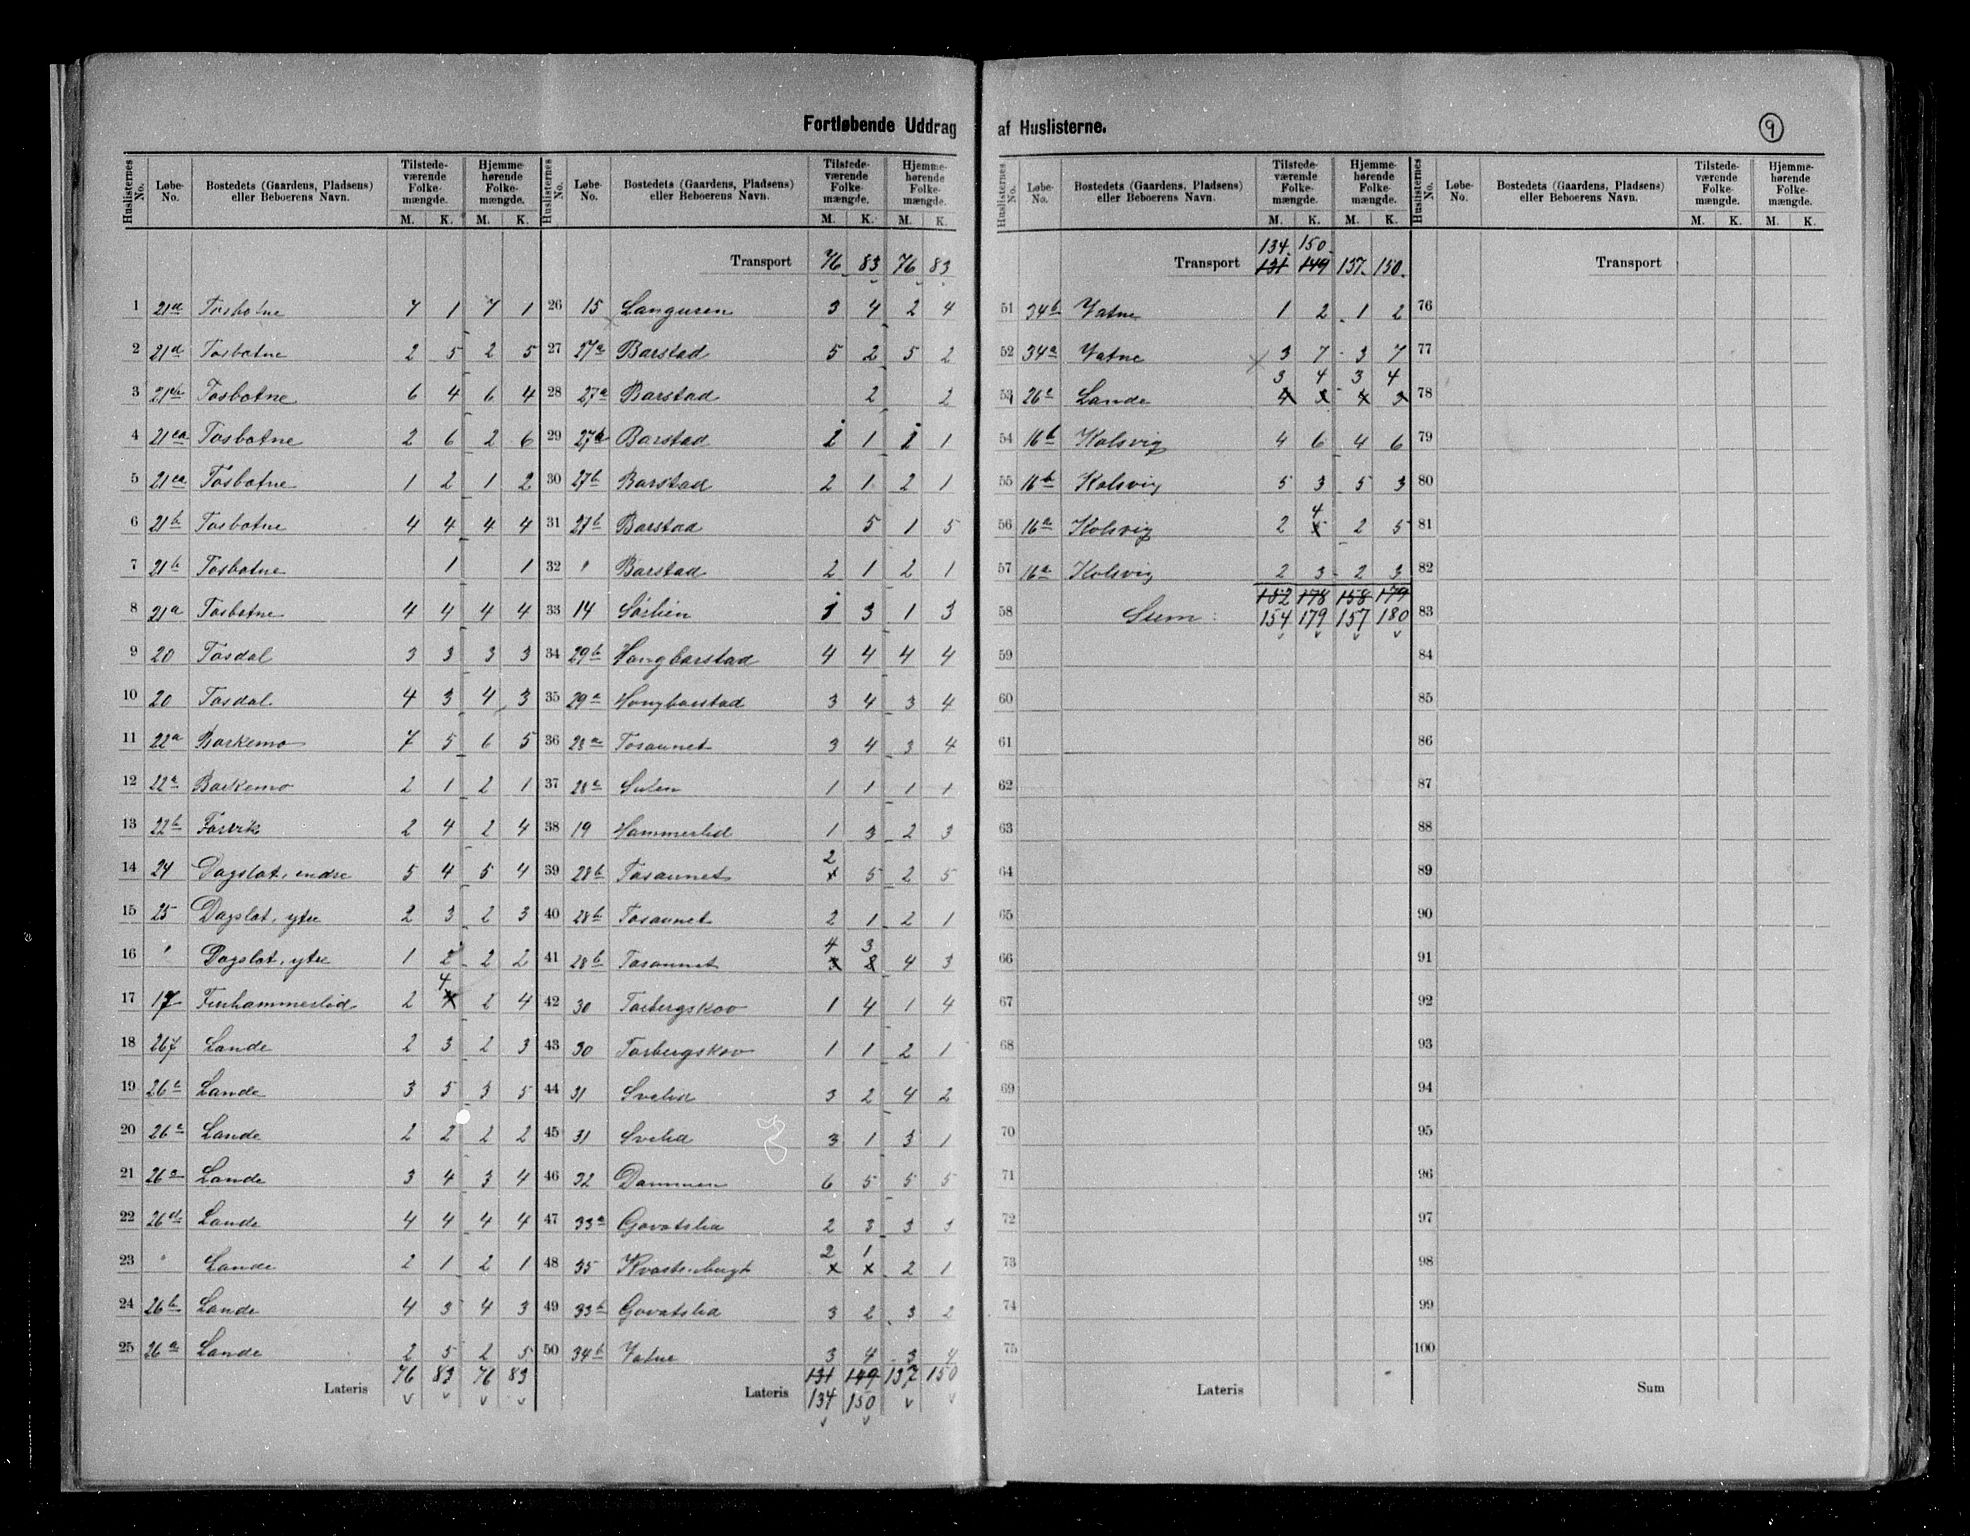 Fortløbende Uddrag af Huslisterne.
9
Huslisternes No. | Løbe-No. | Bostedets (Gaardens, Pladsens) eller Beboerens Navn. | Tilstedeværende Folkemængde. M. K. | Hjemmehørende Folkemængde. M. K.
1 21a Tosbotne 7 1 7 1
2 21d Tosbotne 2 5 2 5
3 21 Tosbotne 6 4 6 4
4 21ca Tosbotne 2 6 2 6
5 21ca Tosbotne 1 2 1 2
6 21b Tosbotne 4 4 4 4
7 21b Tosbotne 1 1
8 21a Tosbotne 4 4 4 4
9 20 Tosdal 3 3 3 3
10 20 Tosdal 4 3 4 3
11 22a Barkemo 7 5 6 5
12 22a Barkemo 2 1 2 1
13 22b Forvik 2 4 2 4
14 24 Dagslot, indre 5 4 5 4
15 25 Dagslot, ytre 2 3 2 3
16 " Dagslot, ytre 1 2 2 2
17 17 Finhammerlid 2 4 2 4
18 267 Lande 2 3 2 3
19 26 Lande 3 5 3 5
20 26a Lande 2 2 2 2
21 26a Lande 3 4 3 4
22 26d Lande 4 4 4 4
23 " Lande 2 1 2 1
24 26b Lande 4 3 4 3
25 26a Lande 2 5 2 5
Lateris 76 83 76 83
Huslisternes No. | Løbe-No. | Bostedets (Gaardens, Pladsens) eller Beboerens Navn. | Tilstedeværende Folkemængde. M. K. | Hjemmehørende Folkemængde. M. K.
Transport 76 83 76 83
26 15 Langusen 3 4 2 4
27 27a Barstad 5 2 5 2
28 27a Barstad 2 2
29 27b Barstad 1 1 1 1
30 27b Barstad 2 1 2 1
31 27b Barstad 5 1 5
32 " Barstad 2 1 2 1
33 14 Sørlien 1 3 1 3
34 29b Hongbarstad 4 4 4 4
35 29a Hongbarstad 3 4 3 4
36 28a Tosaunet 3 4 3 4
37 28a Sulen 1 1 1 1
38 19 Hammerlid 1 3 2 3
39 28b Tosaunet 2 5 2 5
40 28b Tosaunet 2 1 2 1
41 28b Tosaunet 4 3 4 3
42 30 Torbergskov 1 4 1 4
43 30 Torbergskov 1 1 2 1
44 31 Svelid 3 2 4 2
45 31 Svelid 3 1 3 1
46 32 Dammen 6 5 5 5
47 33a Govatslid 2 3 3 3
48 35 2 1 2 1
49 33b Govatslid 3 2 3 2
50 34b Vatne 3 4 3 4
131 149 137 150
Lateris 134 150
Huslisternes No. | Løbe-No. | Bostedets (Gaardens, Pladsens) eller Beboerens Navn. | Tilstedeværende Folkemængde. M. K. | Hjemmehørende Folkemængde. M. K.
134 150
Transport 131 149 137 150
51 34b Vatne 1 2 1 2
52 34a Vatne 3 7 3 7
3 4 3 4
53 26a Lande 4 3 4 3
54 16b Kolsvig 4 6 4 6
55 16b Kolsvig 5 3 5 3
4
56 16a Kolsvig 2 5 2 5
57 16a Kolsvig 2 3 2 3
152 178 158 179
58 Sum: 154 179 157 180
59
60
61
62
63
64
65
66
67
68
69
70
71
72
73
74
75
Lateris
Huslisternes No. | Løbe-No. | Bostedets (Gaardens, Pladsens) eller Beboerens Navn. | Tilstedeværende Folkemængde. M. K. | Hjemmehørende Folkemængde. M. K.
Transport
76
77
78
79
80
81
82
83
84
85
86
87
88
89
90
91
92
93
94
95
96
97
98
99
100
Sum